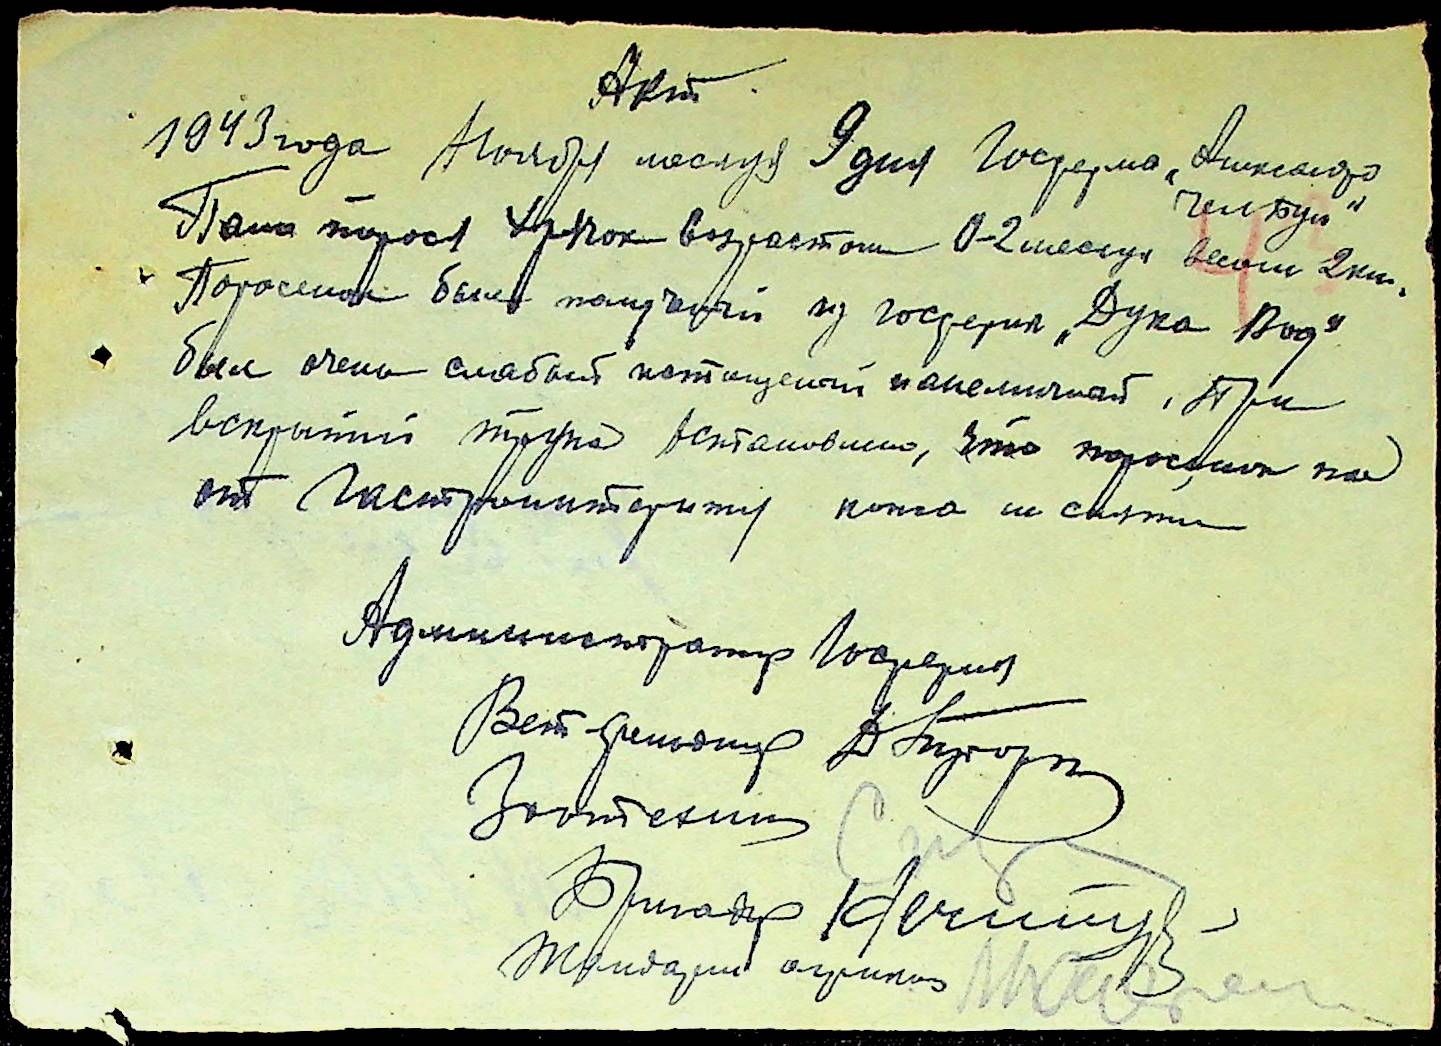 Акт
1943 года Ноября месяця 9 дня Госферма „Александро
Чел Бун“
Пало порося хрячок возрастом 0-2 месяця весом 2 кил.
Поросенок был получений из госферми „Дука Вод“
был очень слабый истощений и анемичный, При
вскрытий трупа встановлено, что поросенок пал
от Гастроинтериту кожа не снята
Администратор Госферми
Вет-фельдшер
Зоотехник
Бригадир
Жандарм агриков